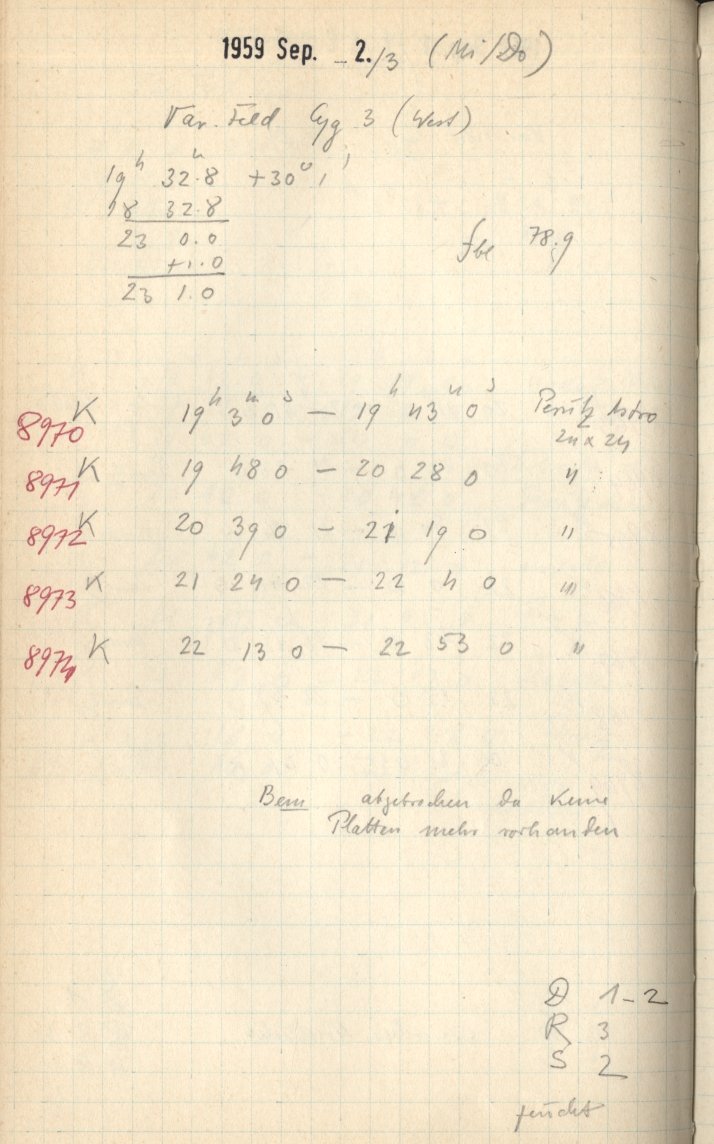 1959 Sep. 2./3 (Mi/Do)
Var. Feld Cyg 3 (West)
19ʰ 32ᵐ.8 +30° 1'
18 32.8
23 0.0
+1.0
23 1.0
fbl 78.9
8970 K 19ʰ 3ᵐ 0ˢ — 19ʰ 43ᵐ 0ˢ Perutz Astro
24 x 24
8971 K 19 48 0 — 20 28 0 "
8972 K 20 39 0 — 21 19 0 "
8973 K 21 24 0 — 22 4 0 "
8974 K 22 13 0 — 22 53 0 "
Bem abgebrochen da keine
Platten mehr vorhanden
D 1-2
R 3
S 2
feucht